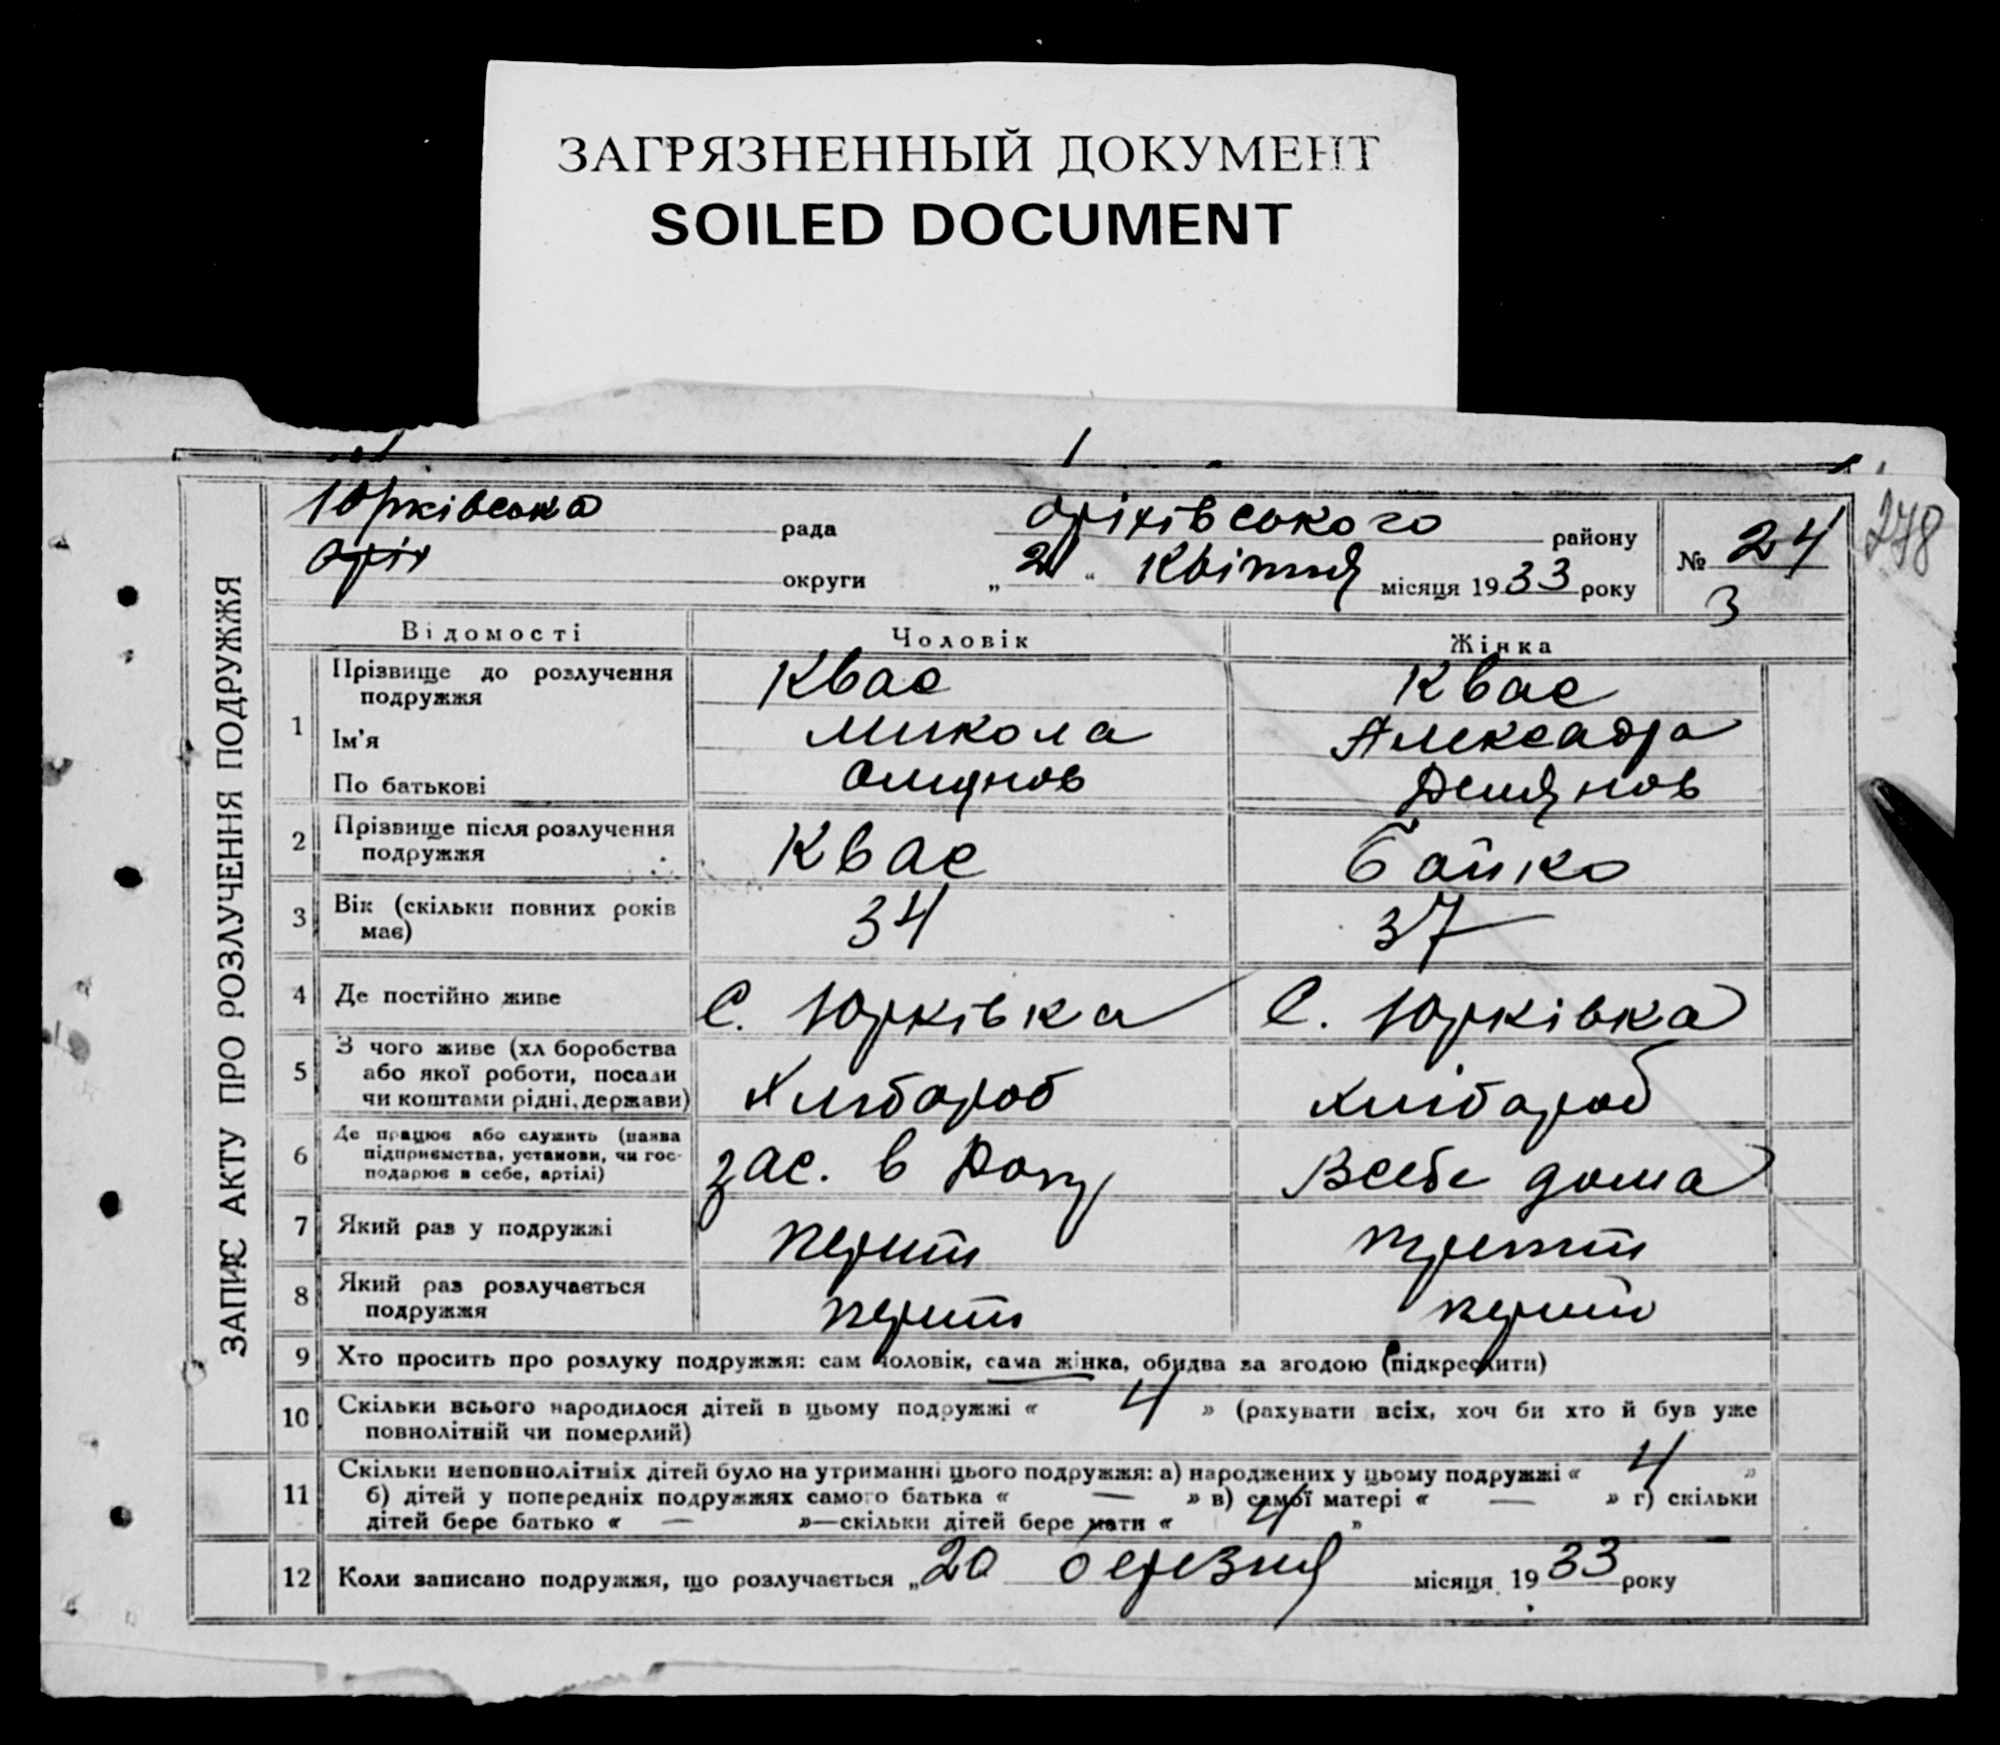 ЗАГРЯЗНЕННЫЙ ДОКУМЕНТ
SOILED DOCUMENT
278
ЗАПИС АКТУ ПРО РОЗЛУЧЕННЯ ПОДРУЖЖЯ
Юрківська рада оріхівського району № 24
оріх округи „2“ Квітня місяця 1933 року
3
Відомості Чоловік Жінка
1 Прізвище до розлучення подружжя Квас Квас
Ім'я Микола Александра
По батькові Демянов
2 Прізвище після розлучення подружжя Квас Бойко
3 Вік (скільки повних років має) 34 37
4 Де постійно живе С. Юрківка С. Юрківка
5 З чого живе (хл боробства або якої роботи, посади чи коштами рідні, держави) Хлібороб хлібороб
6 Де працює або служить (назва підприємства, установи, чи господарює в себе, артілі) зас. в В себе дома
7 Який раз у подружжі перший
8 Який раз розлучається подружжя перший перший
9 Хто просить про розлуку подружжя: сам чоловік, сама жінка, обидва за згодою (підкреслити)
10 Скільки всього народилося дітей в цьому подружжі « 4 » (рахувати всіх, хоч би хто й був уже
повнолітній чи померлий)
11 Скільки неповнолітніх дітей було на утриманні цього подружжя: а) народжених у цьому подружжі « 4 »
б) дітей у попередніх подружжях самого батька « — » в) самої матері « — » г) скільки
дітей бере батько « — »—скільки дітей бере мати « 4 »
12 Коли записано подружжя, що розлучається „20 березня місяця 1933 року